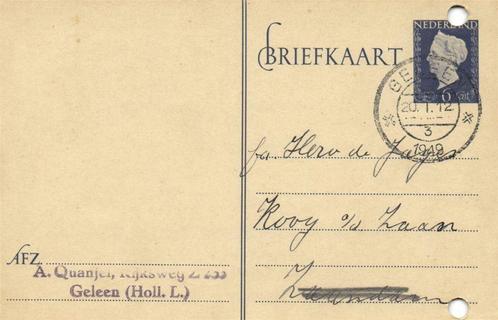 BRIEFKAART
NEDERLAND
6 ct
GELEEN
20.1.12
3
1949
fa. Hero de Jager
Kooy a/d Zaan
Zaandam
AFZ.
A. Quanjel, Rijksweg Z 233
Geleen (Holl. L.)